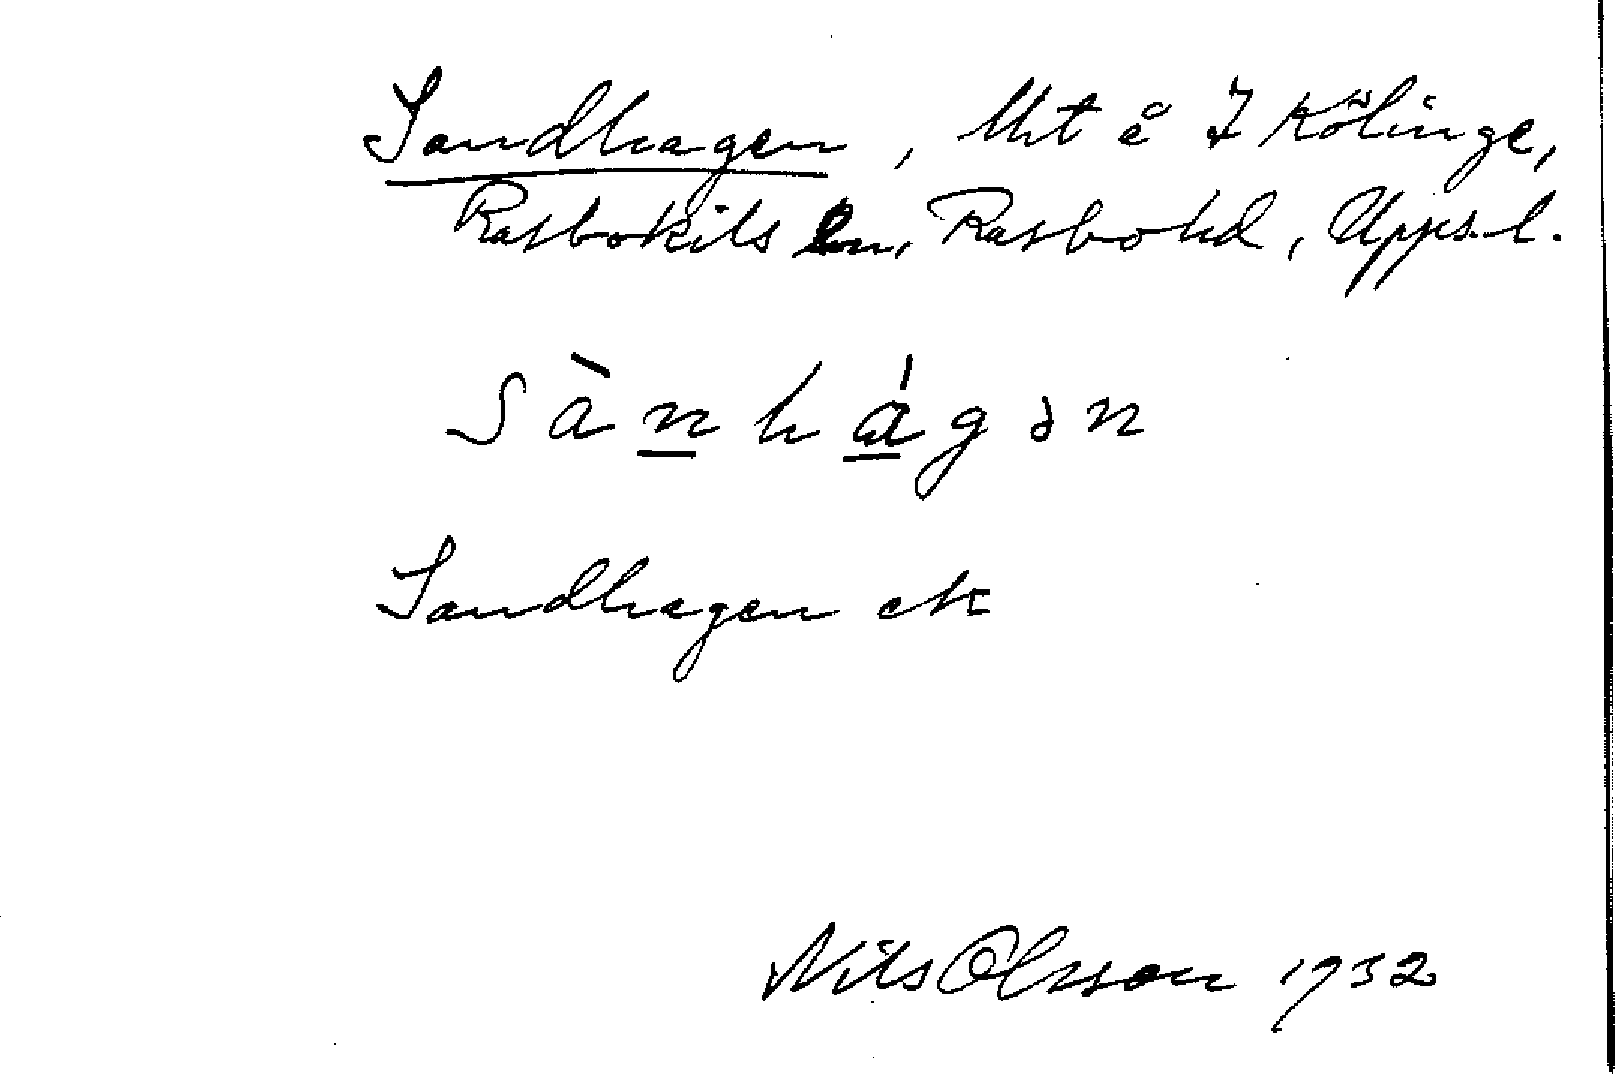 Sandhagen, lht å 7 Kölinge,
Rasbokils sn, Rasbo hd, Upps. l.
sàn̲há̲gən
Sandhagen ek
Nils Olsson 1932